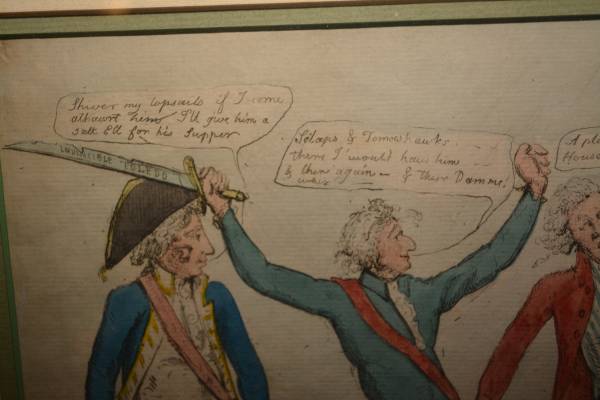 Shiver my topsails if I come
athwart him I'll give him a
salt Eel for his Supper
INVINCIBLE TOLEDO
Sculps & Tomowhawks
there I would have him
& there again — & there Damme
A pl
House